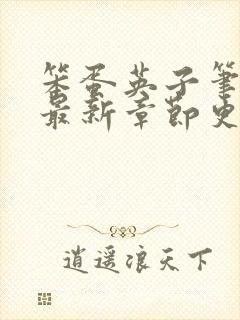 笨蛋英子筆
最新章節史
逍遥浪天下